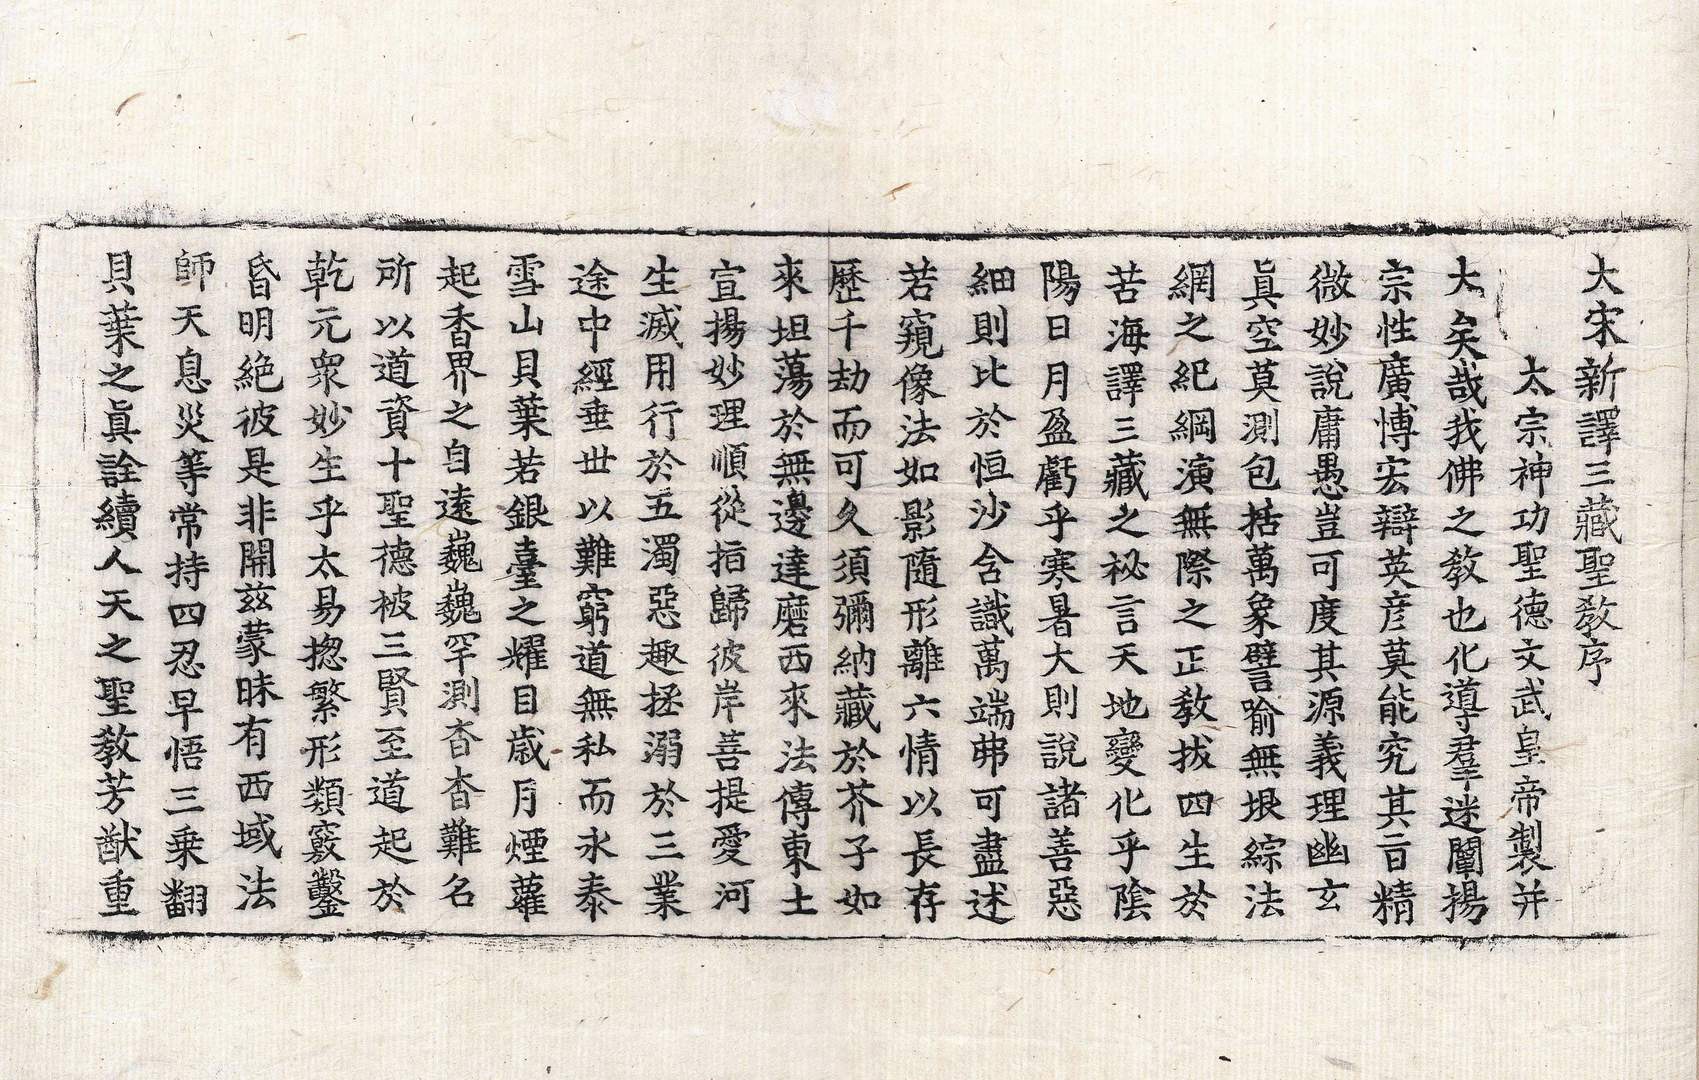 大宋新譯三藏聖教序
太宗神功聖德文武皇帝製并
大矣哉我佛之教也化導羣迷闡揚
宗性廣博宏辯英彦莫能究其旨精
微妙說庸愚豈可度其源義理幽玄
眞空莫測包括萬象譬喻無垠綜法
網之紀綱演無際之正教拔四生於
苦海譯三藏之祕言天地變化乎陰
陽日月盈虧乎寒暑大則說諸善惡
細則比於恒沙含識萬端弗可盡述
若窺像法如影隨形離六情以長存
歷千劫而可久須彌納藏於芥子如
來坦蕩於無邊達磨西來法傳東土
宣揚妙理順從指歸彼岸菩提愛河
生滅用行於五濁惡趣拯溺於三業
途中經垂世以難窮道無私而永泰
雪山貝葉若銀臺之耀目歲月煙蘿
起香界之自遠巍巍罕測杳杳難名
所以道資十聖德被三賢至道起於
乾元衆妙生乎太易揔繁形類竅鑿
昏明絶彼是非開兹蒙昧有西域法
師天息災等常持四忍早悟三乗翻
貝葉之眞詮續人天之聖教芳猷重